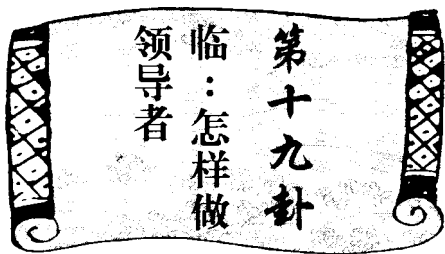 第十九卦
临：怎样做
领导者